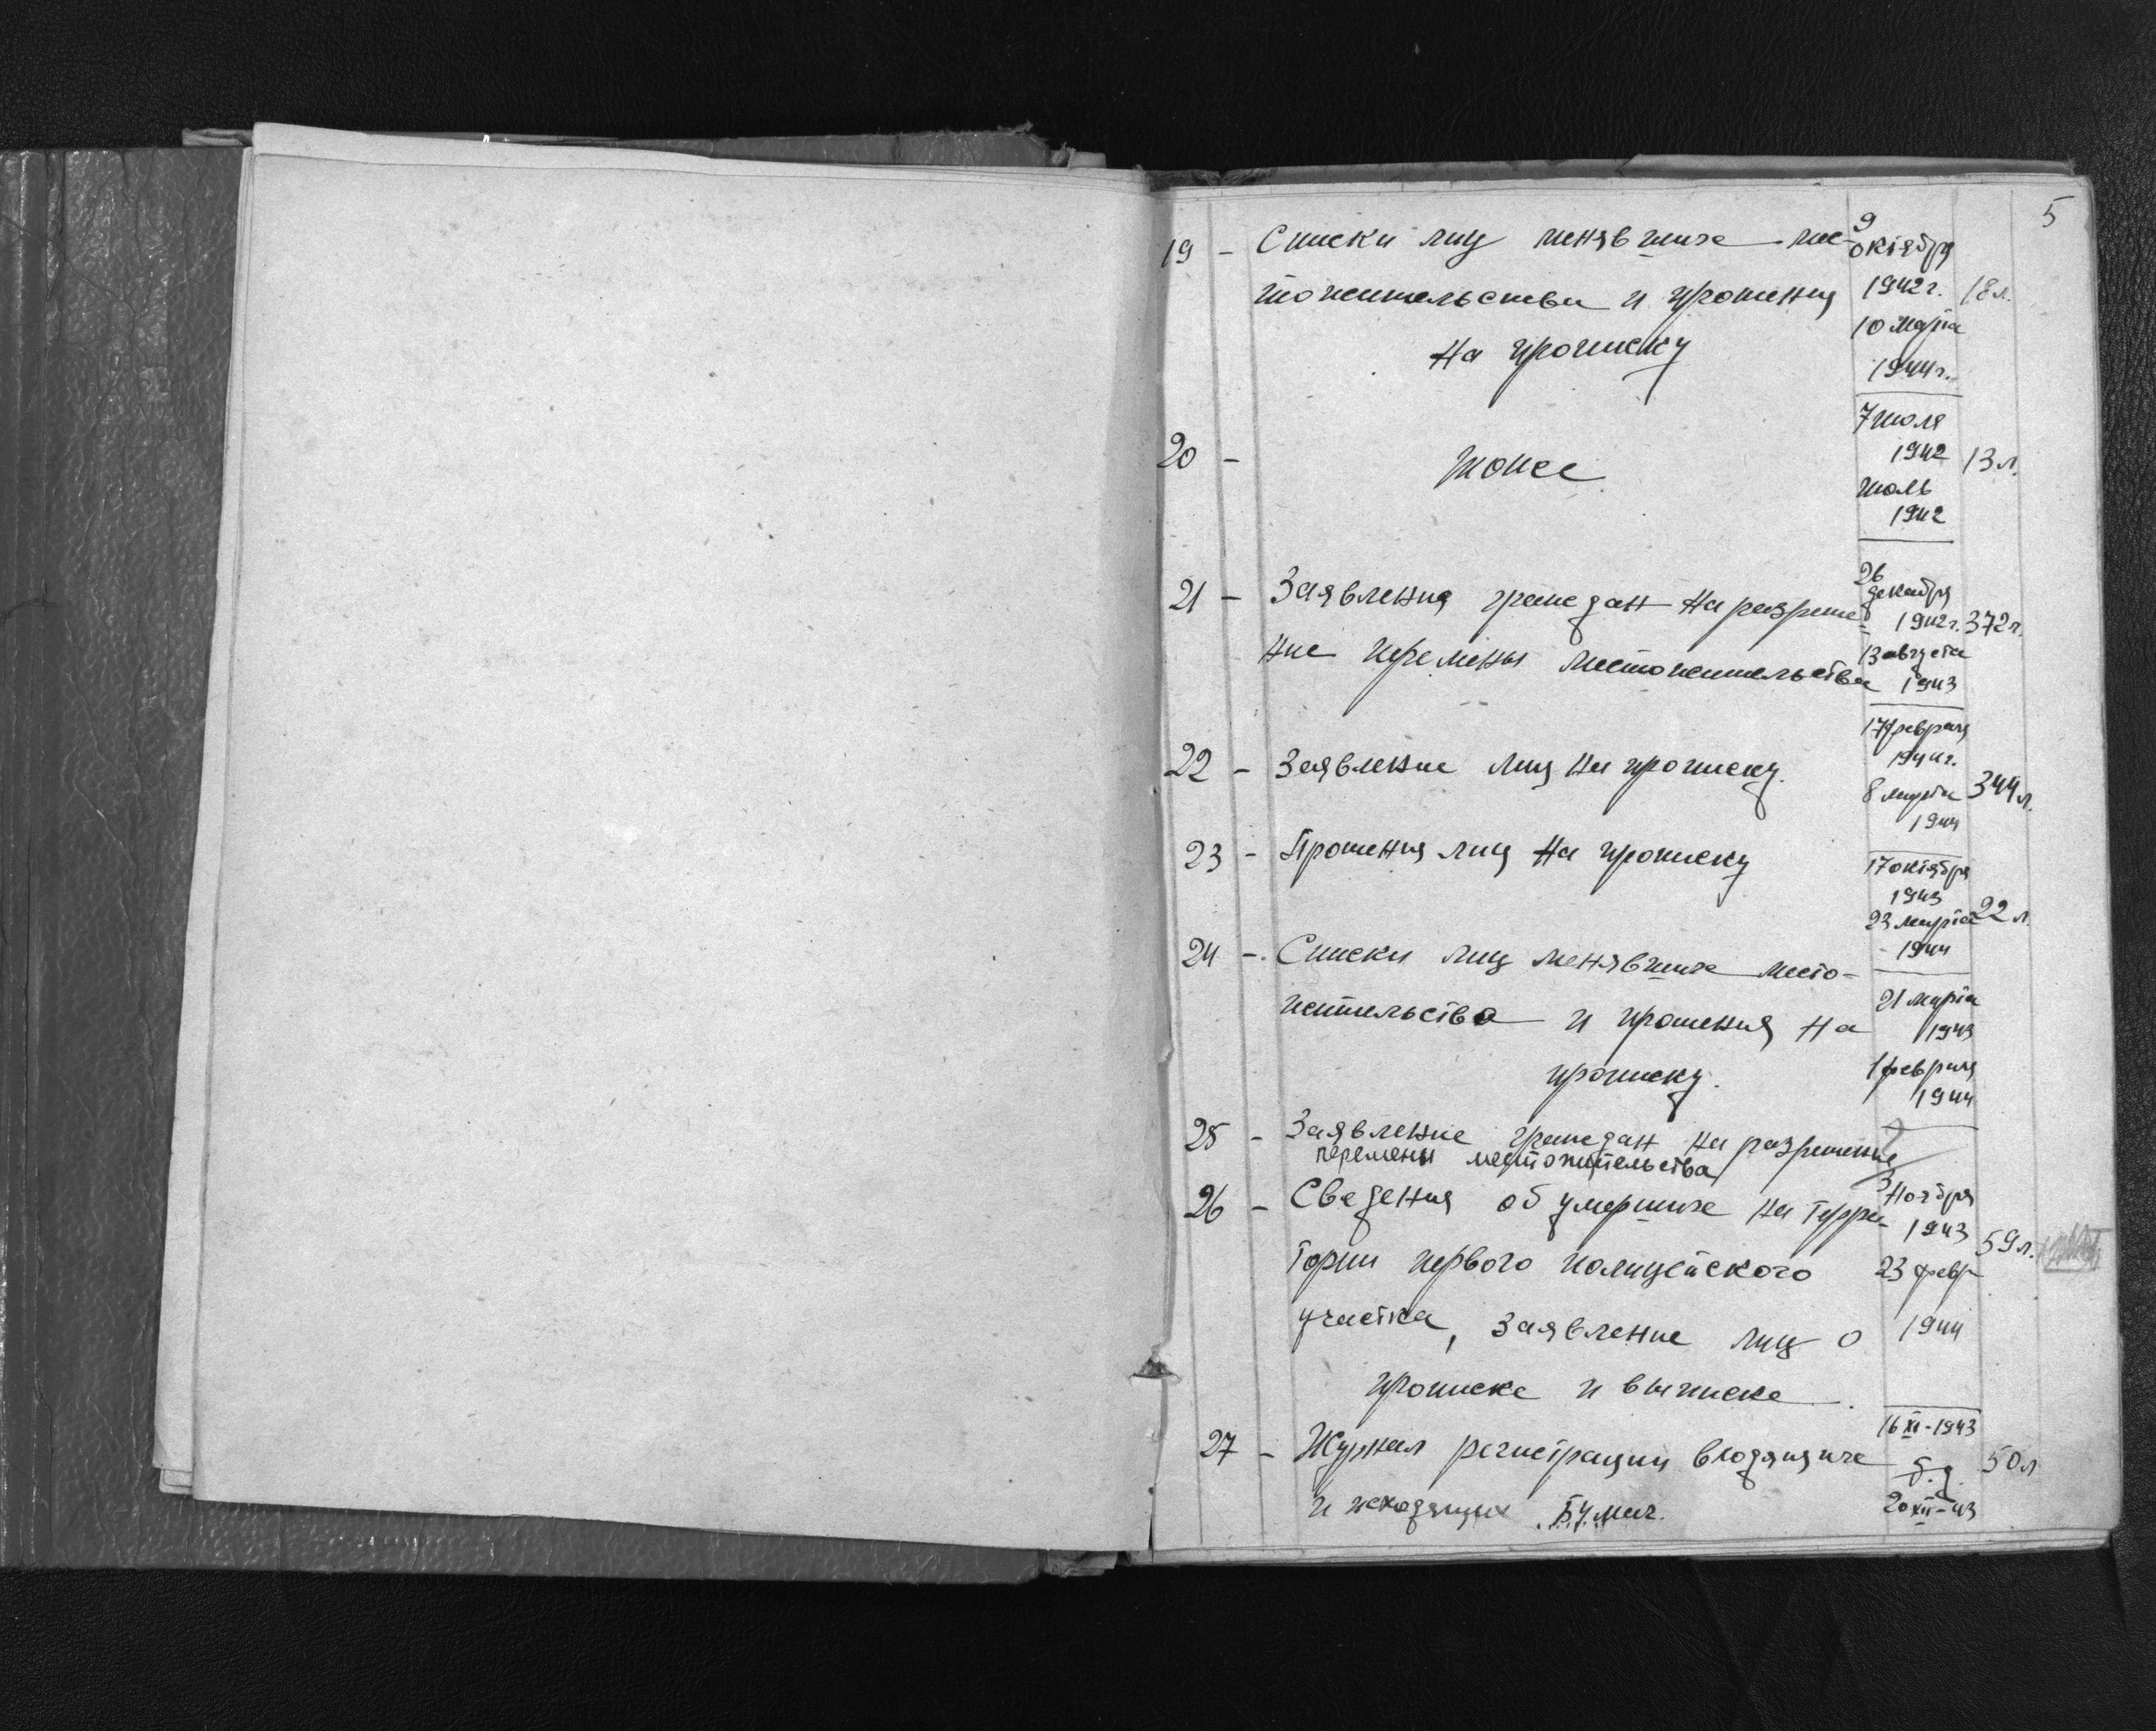 5
19 - Списки лиц менявших мес-
тожительства и прошения
на прописку
9
октября
1942 г. 18 л.
10 марта
1944 г.
20 - тоже
7 июля
1942 13 л.
июль
1942
21 - Заявления граждан на разреше-
ние перемены местожительства
26
декабря
1942 г. 372 л.
13 августа
1943
22 - Заявление лиц на прописку.
17 февраля
1944 г.
8 марта 344 л.
1944
23 - Прошения лиц на прописку
17 октября
1943
23 марта 22 л.
1944
24 - Списки лиц менявших место-
жительства и прошения на
прописку.
21 марта
1943
1 февраля
1944
25 - Заявление граждан на разрешение
перемены местожительства
26 - Сведения об умерших на терри-
тории первого полицейского
участка, заявление лиц о
прописке и выписке.
3 ноября
1943 59 л.
23 февр
1944
27 - Журнал регистрации входящих
и исходящих бумаг.
16 XI - 1943
б.д. 50 л
20 XII - 43